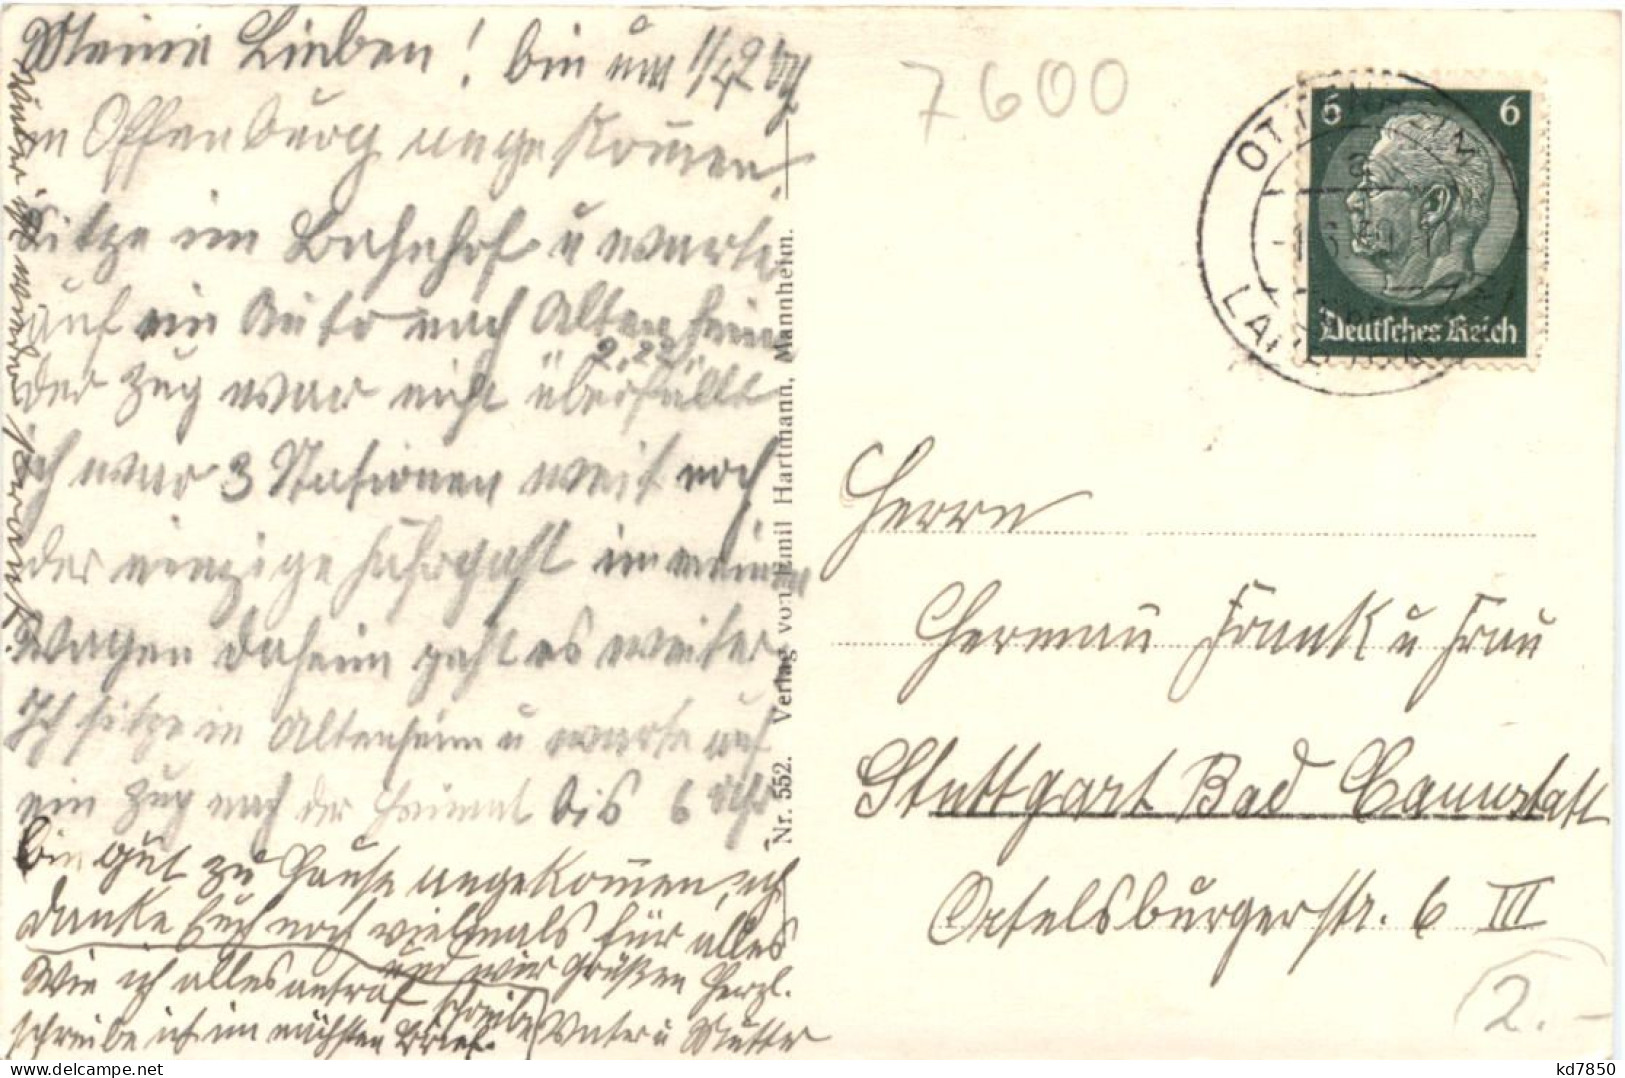 Meine Lieben! bin um 1/4 2 Uhr
in Offenburg angekom̄en.
Sitze im Bahnhof u warte
auf ein Auto nach Altenheim
2.22
der Zug war nicht überfüllt
ich war 3 Stationen weit noch
der einzige Fahrgast im meinem
Wagen daheim geht es weiter
Ich sitze in Altenheim u warte auf
ein Zug nach der Heimat bis 6 Uhr
bin gut zu Hause angekom̄en, ich
danke Euch noch vielmals für alles
und wir grüßen Herzl.
Wie ich alles antraf schreibe
schreibe ich im nächsten Brief. Vater u Mutter
Vater ist wieder
Nr. 552. Verlag von Emil Hartmann, Mannheim.
7600
6 6
Deutsches Reich
Herrn
Herman̄ Frank u Frau
Stuttgart Bad Cannstatt
Ortelsburgerstr. 6 III
2.-
kd7850